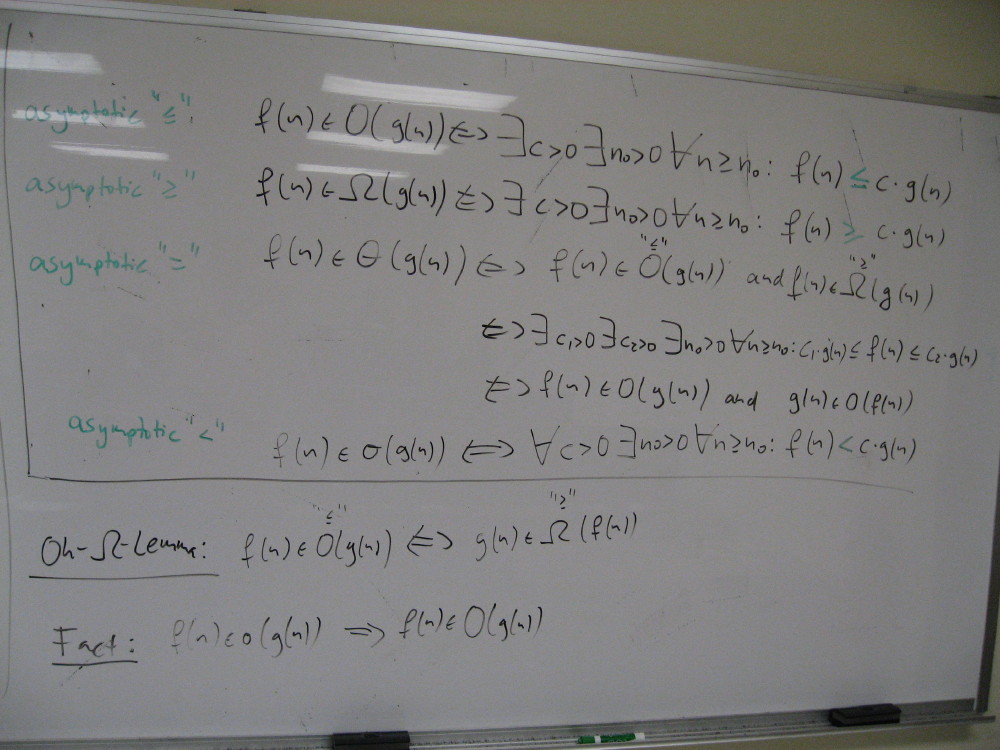 asymptotic "≤": f(n) ∈ O(g(n)) ⇔ ∃c>0 ∃n₀>0 ∀n≥n₀: f(n) ≤ c·g(n)
asymptotic "≥" f(n) ∈ Ω(g(n)) ⇔ ∃c>0 ∃n₀>0 ∀n≥n₀: f(n) ≥ c·g(n)
"≤" "≥"
asymptotic "=" f(n) ∈ Θ(g(n)) ⇔ f(n) ∈ O(g(n)) and f(n) ∈ Ω(g(n))
⇔ ∃c₁>0 ∃c₂>0 ∃n₀>0 ∀n≥n₀: c₁·g(n) ≤ f(n) ≤ c₂·g(n)
⇔ f(n) ∈ O(g(n)) and g(n) ∈ O(f(n))
asymptotic "<" f(n) ∈ o(g(n)) ⇔ ∀c>0 ∃n₀>0 ∀n≥n₀: f(n) < c·g(n)
"≤" "≥"
Oh-Ω-Lemma: f(n) ∈ O(g(n)) ⇔ g(n) ∈ Ω(f(n))
Fact: f(n) ∈ o(g(n)) ⇒ f(n) ∈ O(g(n))